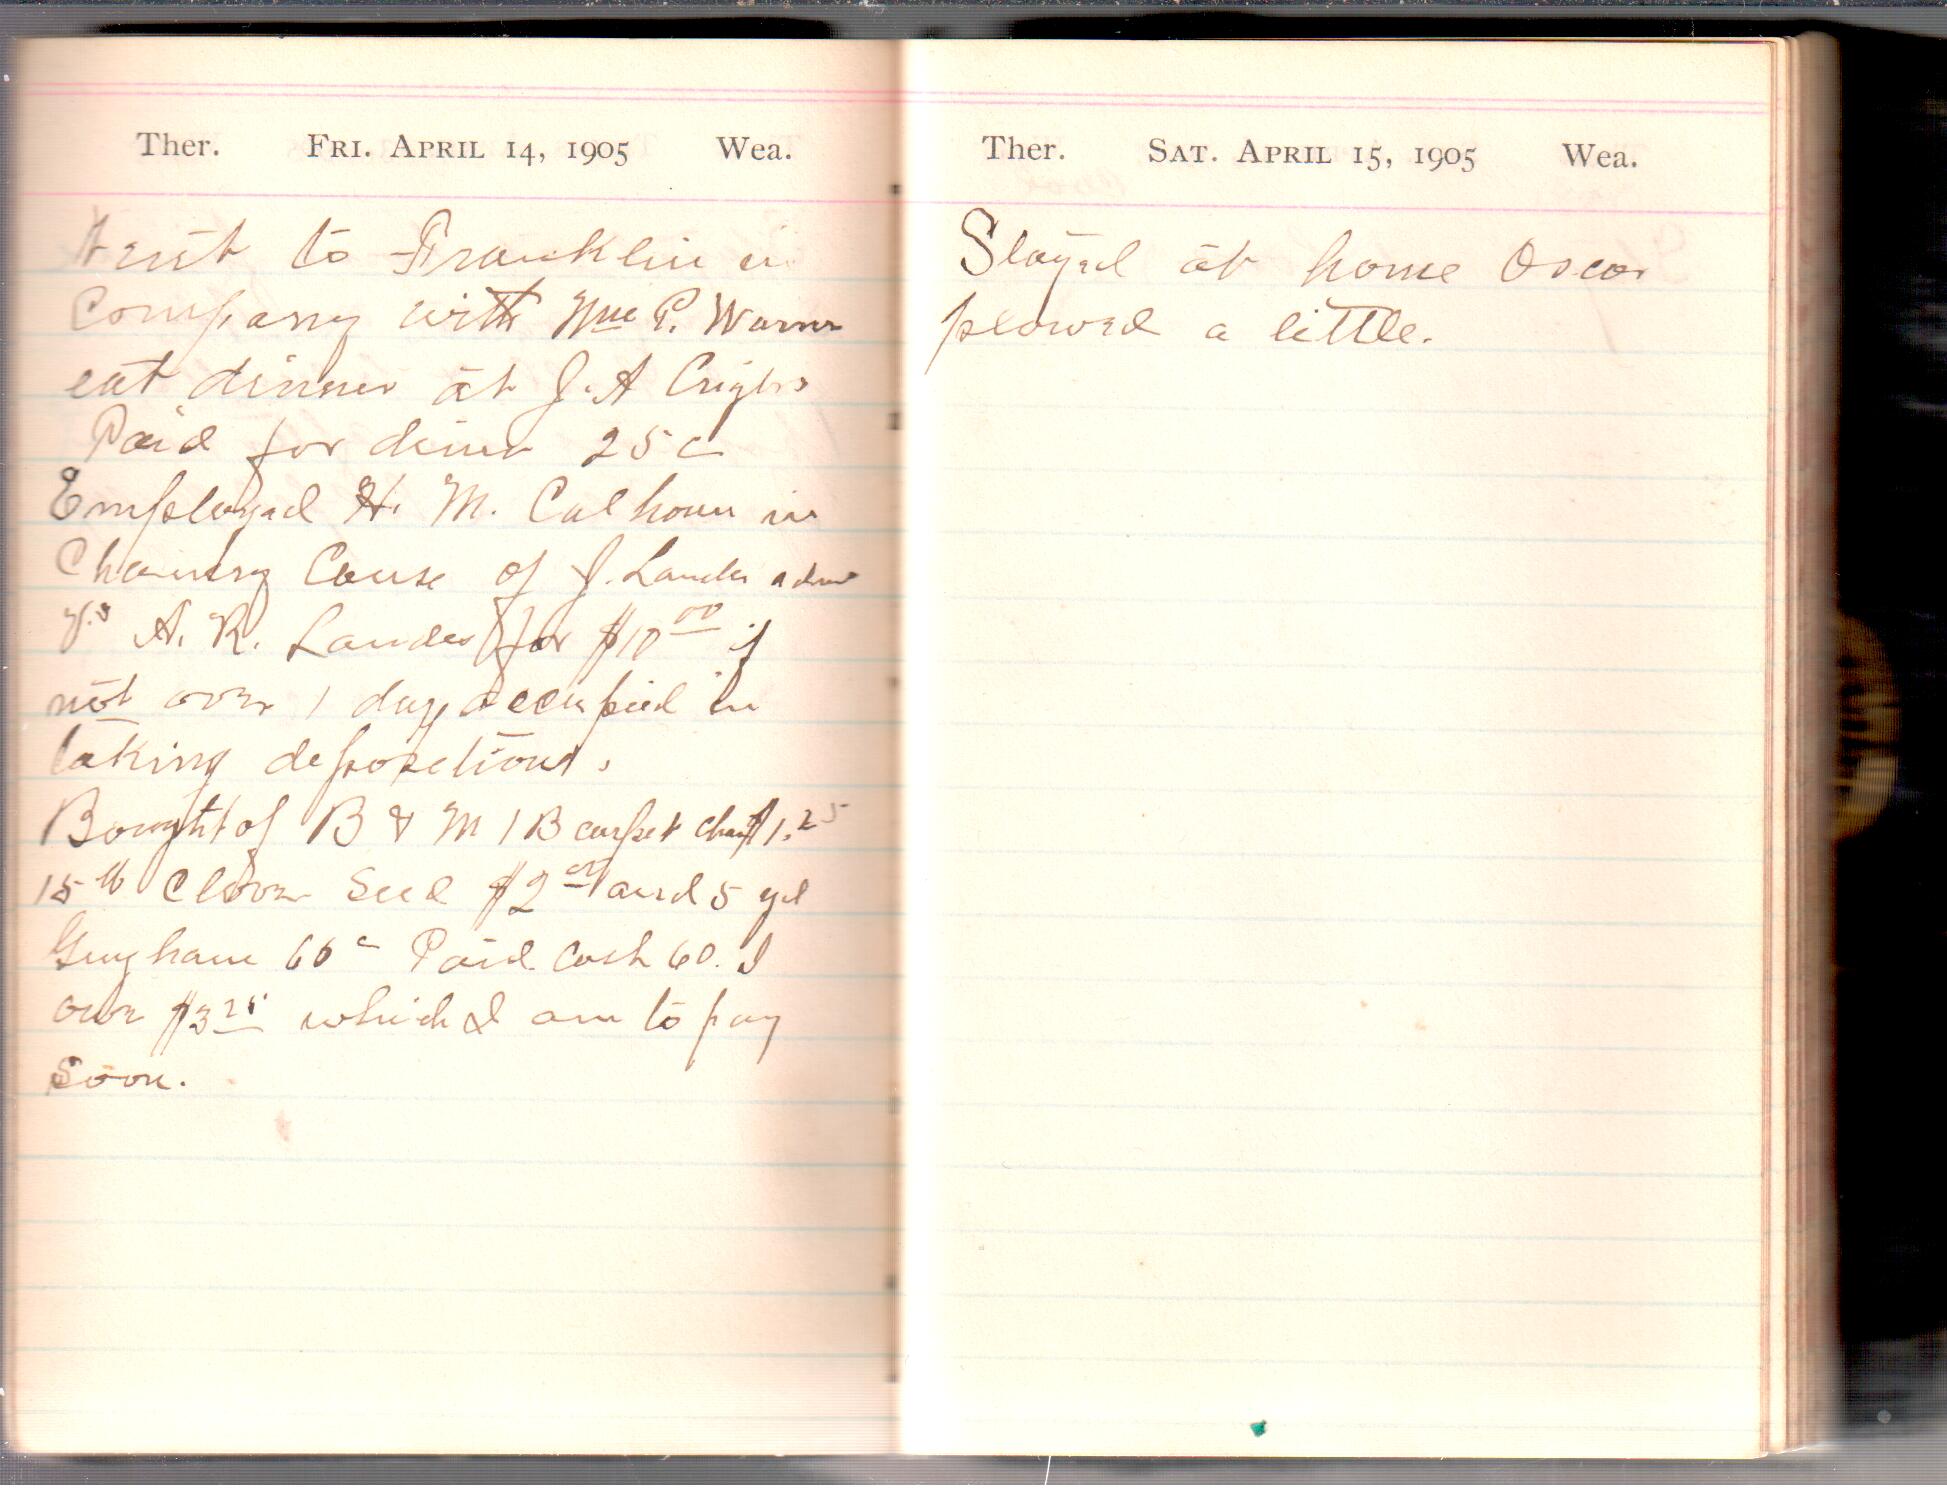 Ther. FRI. APRIL 14, 1905 Wea.
Went to Franklin in
Company with Wm P. Warner
eat dinner at J. A
Paid for dinner 25 c
Employed H. M. Calhoun in
Chancery Cause of J. Landes admr
Vs A. R. Landes for $10 00 if
not over 1 day occupied in
taking depositions.
Bought of B & M 1 B carpet chain $1.25
15 lb Clover Seed $2 00 and 5 yd
Gingham 60 c Paid Cash 60. I
owe $3 25 which I am to pay
Soon.
Ther. SAT. APRIL 15, 1905 Wea.
Stayed at home Oscar
plowed a little.